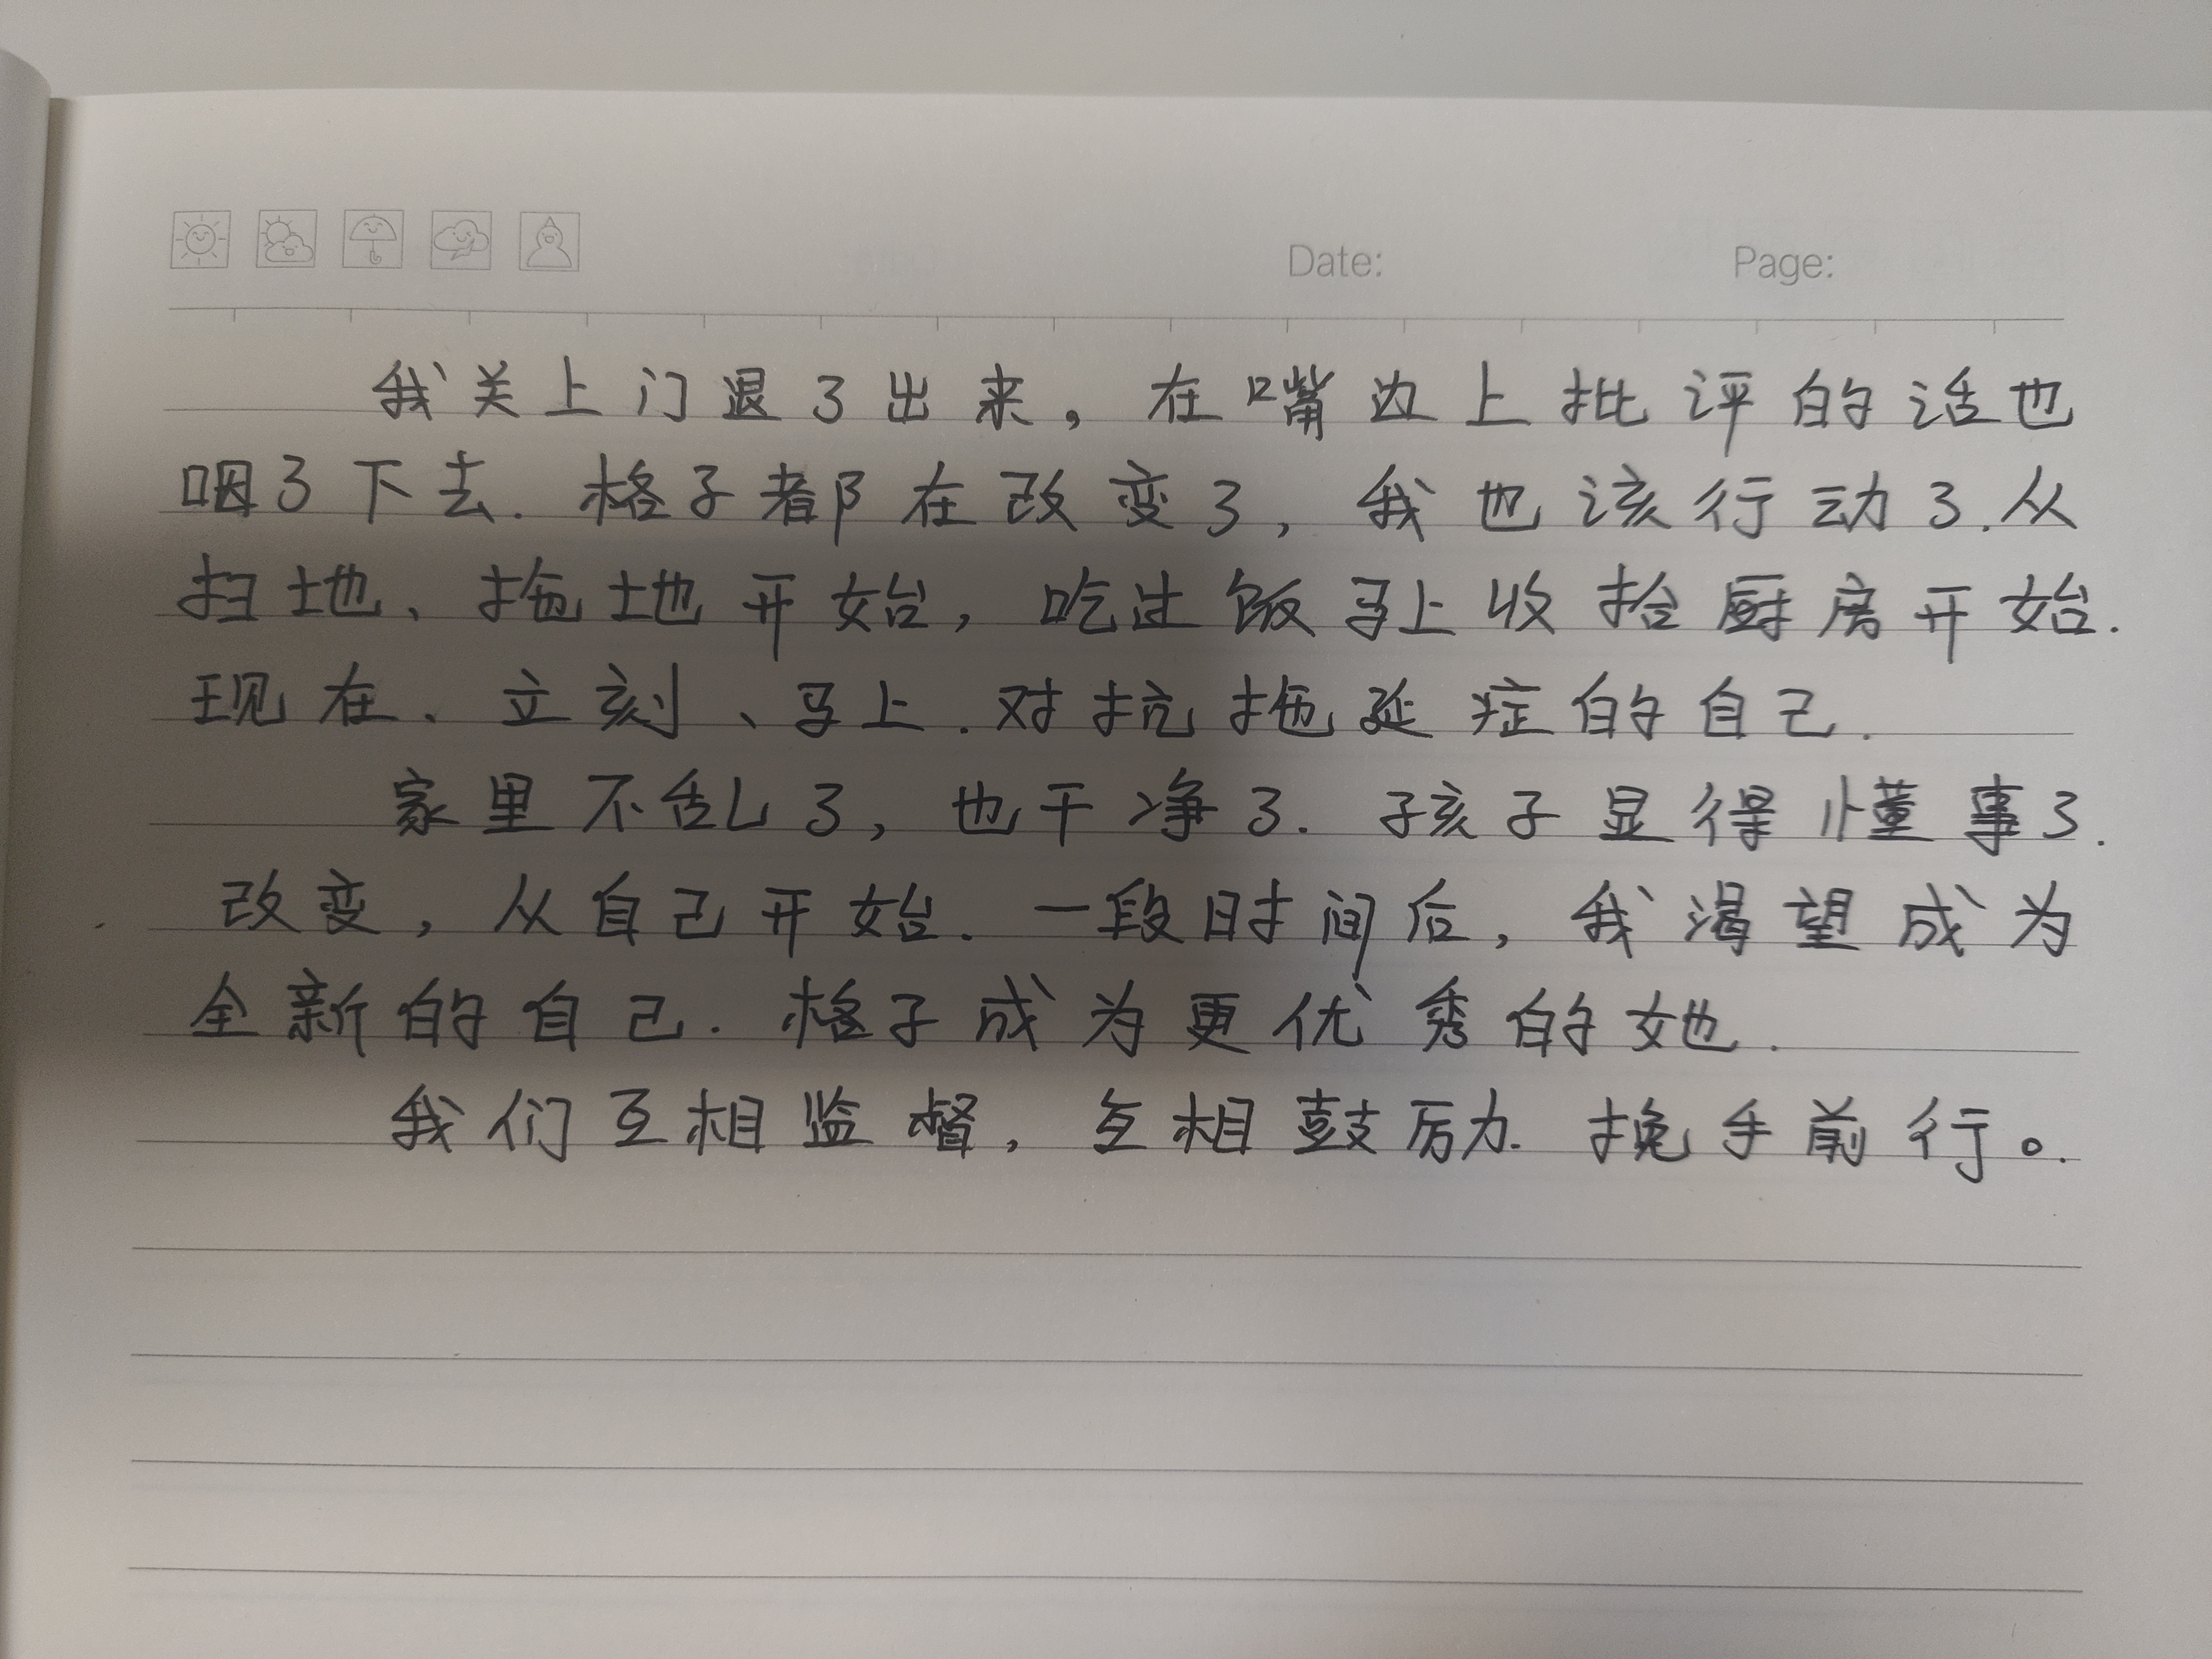 Date: Page:
我关上门退了出来，在嘴边上批评的话也
咽了下去.格子都在改变了,我也该行动了.从
扫地、拖地开始,吃过饭马上收拾厨房开始.
现在、立刻、马上.对抗拖延症的自己.
家里不乱了,也干净了.孩子显得懂事了.
改变,从自己开始.一段时间后,我渴望成为
全新的自己.格子成为更优秀的她.
我们互相监督,互相鼓励.挽手前行。